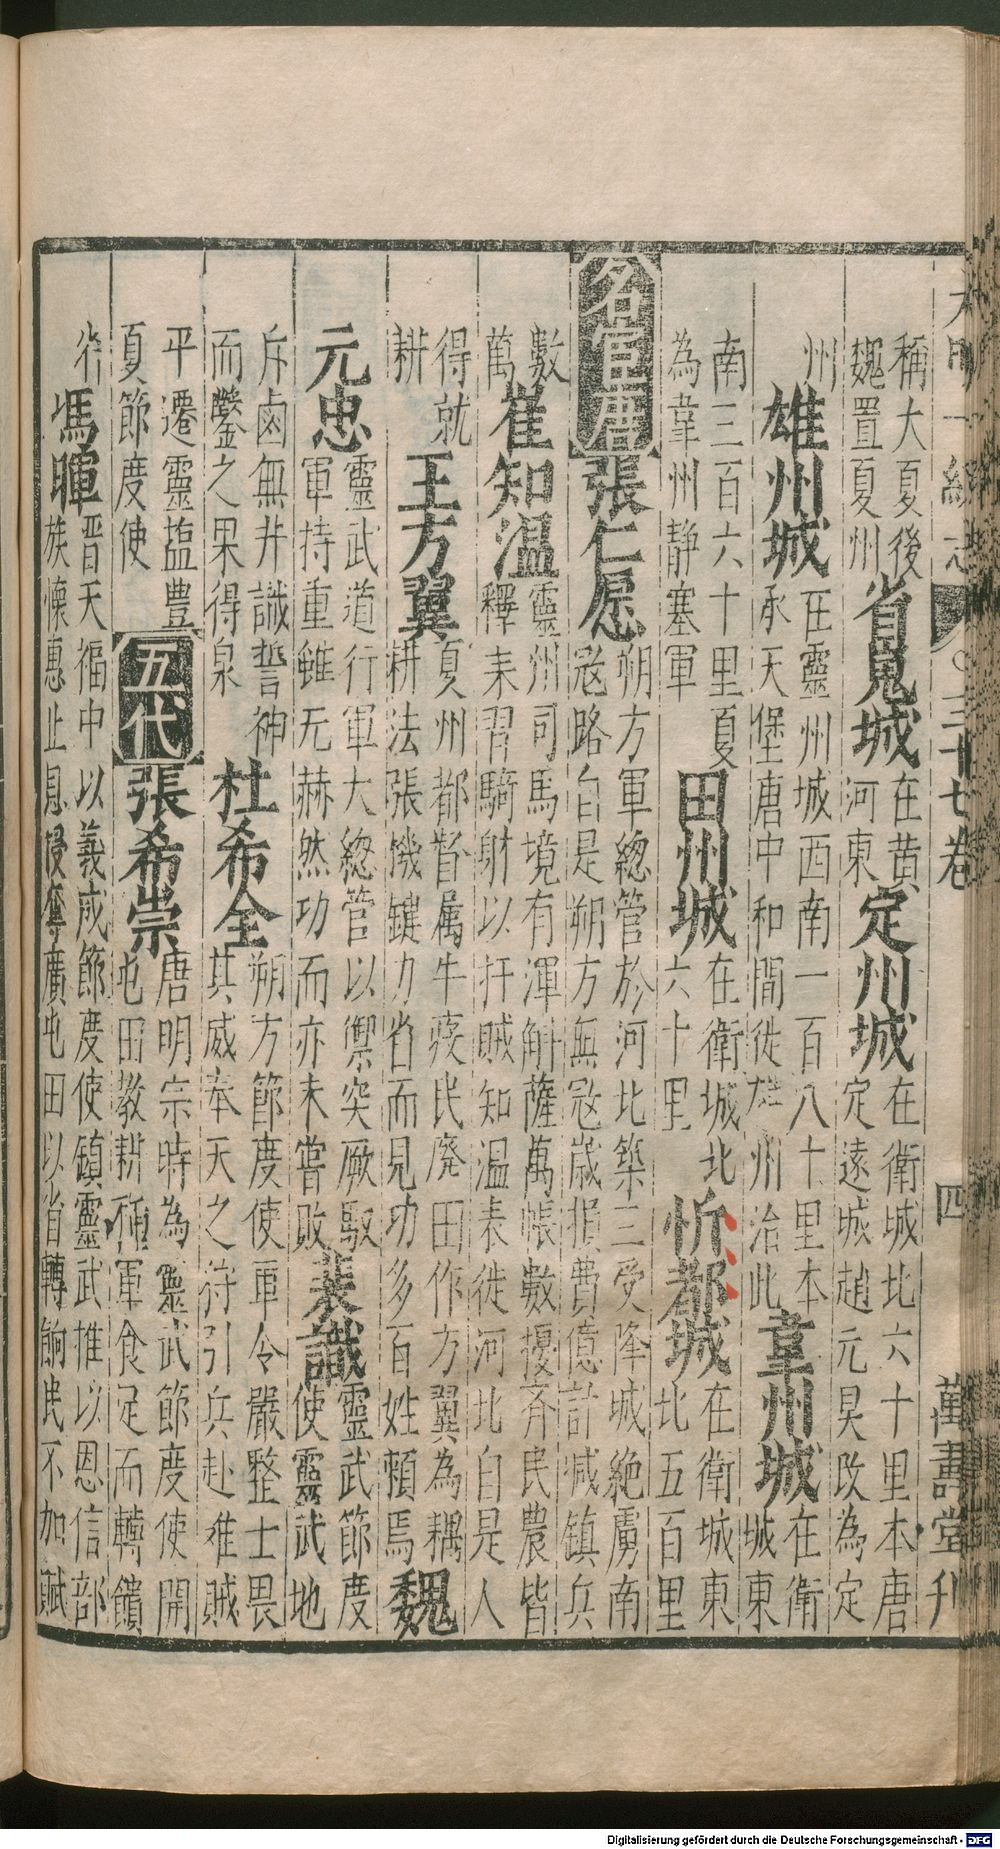 大明一統志 三十七卷 四 萬壽堂刊
稱大夏後
魏置夏州
省嵬城
在黄
河東
定州城
在衛城北六十里本唐
定遠城趙元昊改為定
州
雄州城
在靈州城西南一百八十里本
承天堡唐中和間徙雄州治此
韋州城
在衛
城東
南三百六十里夏
為韋州靜塞軍
田州城
在衛城北
六十里
忻都城
在衛城東
北五百里
名宦唐
張仁愿
朔方軍總管於河北築三受降城絶虜南
寇路自是朔方無寇歲損費億計减鎮兵
數
萬
崔知温
靈州司馬境有渾斛薩萬帳數擾齊民農皆
釋耒習騎射以扞賊知温表徙河北自是人
得就
耕
王方翼
夏州都督属牛疫民廢田作方翼為耦
耕法張機鍵力省而見功多百姓賴焉
魏
元忠
靈武道行軍大總管以禦突厥馭
軍持重雖无赫然功而亦未嘗敗
裴識
靈武節度
使靈武地
斥鹵無井識誓神
而鑿之果得泉
杜希全
朔方節度使軍令嚴整士畏
其威奉天之狩引兵赴难賊
平遷靈塩豊
夏節度使
五代
張希崇
唐明宗時為靈武節度使開
屯田教耕種軍食足而轉饋
省
馮暉
晋天福中以義成節度使鎮靈武推以恩信部
族懷惠止息侵奪廣屯田以省轉餉民不加賦
Digitalisierung gefördert durch die Deutsche Forschungsgemeinschaft - DFG